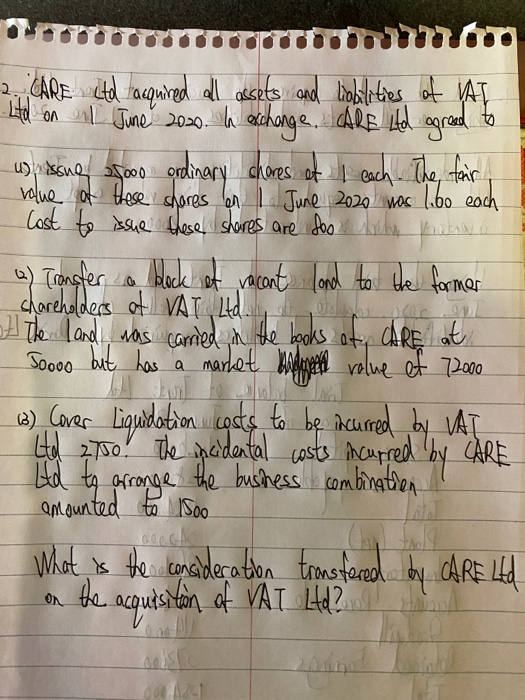 2. CARE Ltd acquired all assets and liabilities of VAT
Ltd on 1 June 2020. In exchange, CARE Ltd agreed to
(1) issue 25000 ordinary shares of 1 each. The fair
value of these shares on 1 June 2020 was 1.60 each
Cost to issue these shares are 800
(2) Transfer a block of vacant land to the former
shareholders of VAT Ltd.
The land was carried in the books of CARE at
50000 but has a market value of 72000
(3) Cover Liquidation costs to be incurred by VAT
Ltd 2750. The incidental costs incurred by CARE
Ltd to arrange the business combination
amounted to 1500
What is the consideration transfered by CARE Ltd
on the acquisition of VAT Ltd?